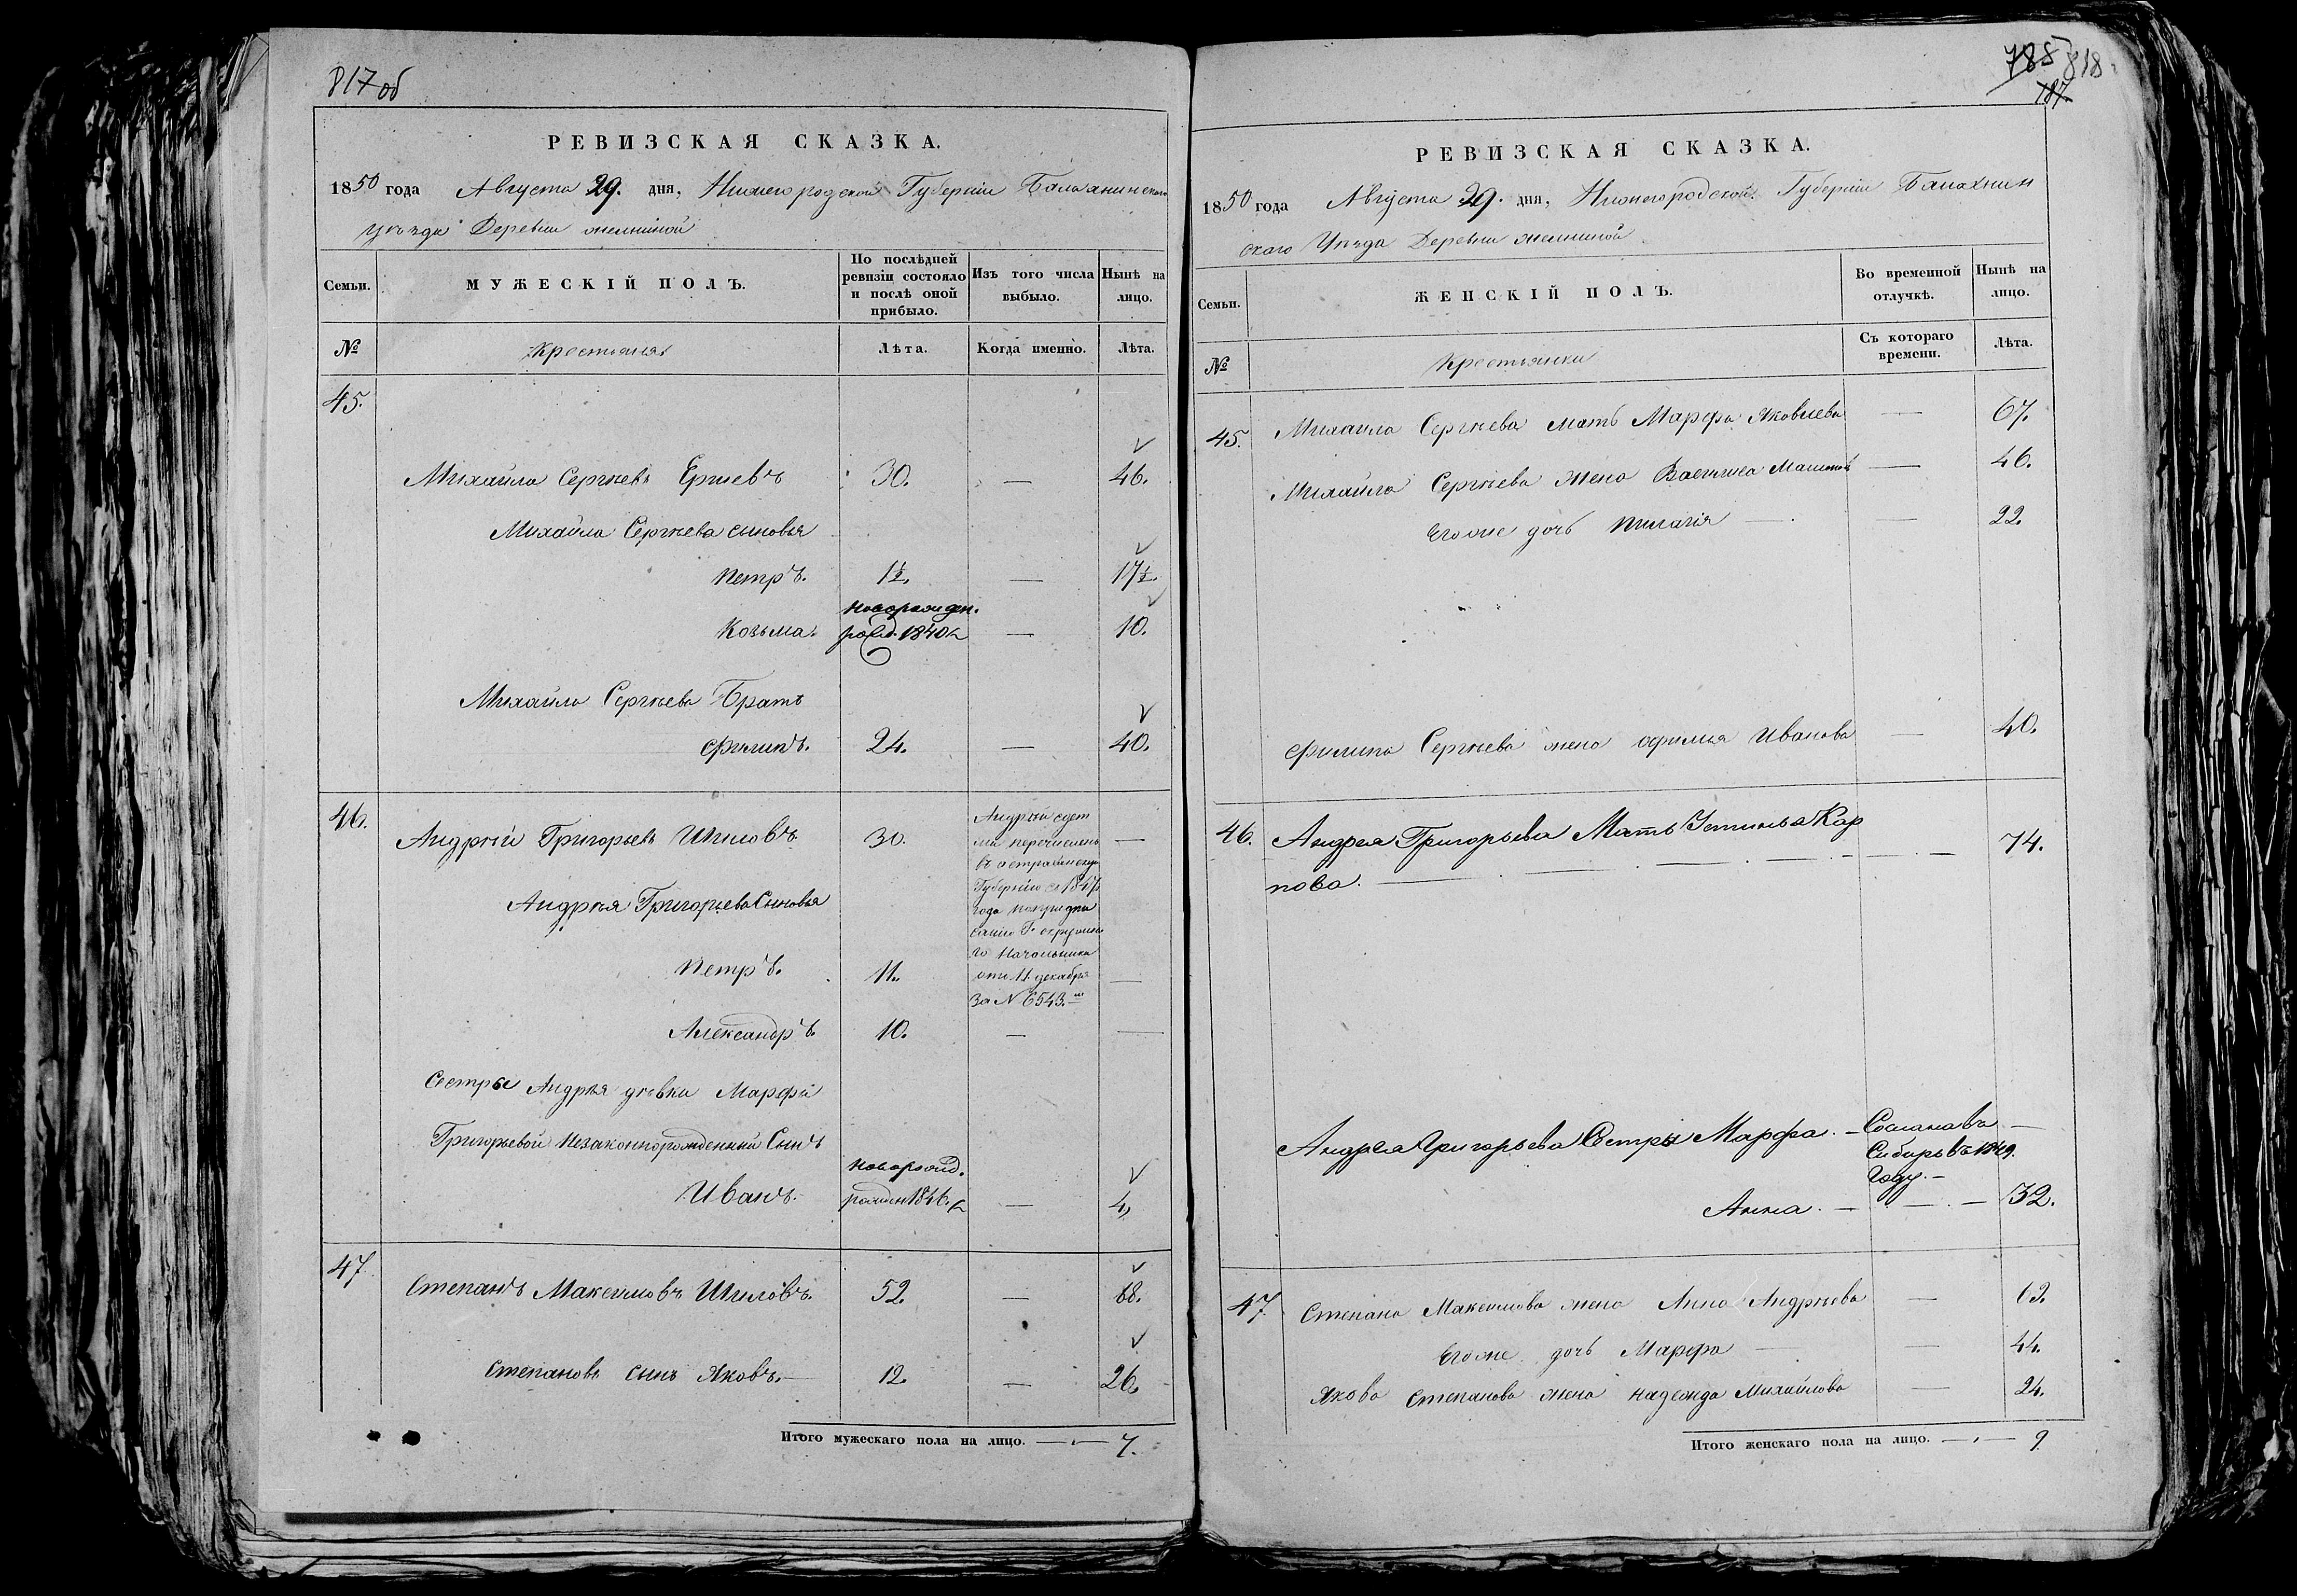 817 об
РЕВИЗСКАЯ СКАЗКА.
1850 года Августа 29. дня, Нижегородской Губерніи Балахнинскаго
Уѣзда Деревни
Семьи.
МУЖЕСКІЙ ПОЛЪ.
По послѣдней ревизіи состояло и послѣ оной прибыло.
Изъ того числа выбыло.
Нынѣ на лицо.
№
Крестьяня
Лѣта.
Когда именно.
Лѣта.
45.
Михайла Сергѣевъ 30. — 46.
Михайла Сергѣева сыновья
Петръ. 1½. — 17½.
новорожден.
Козьма. рожд. 1840 — 10.
Михайла Сергѣева Братъ
Филипъ. 24. — 40.
46. Андрѣй Григорьевъ Шиловъ 30. —
Андрѣй
перечислены
въ
Губернію с 1847
года по предпи
санію Г. окружна
го Начальника
отъ 11 декабря
за № 6543.
Андрѣя Григорьева Сыновья
Петръ. 11. —
Александръ. 10. — —
Сестры Андрѣя дѣвки Марфы
Григорьевой Незаконнорожденный Сынъ
новорожд.
Иванъ. 1846. — 4.
47. Степанъ Максимовъ Шиловъ. 52. — 68.
Степановъ сынъ Яковъ. — 12. — 26.
Итого мужескаго пола на лицо. — 7.
785 818.
187.
РЕВИЗСКАЯ СКАЗКА.
1850 года Августа 29. дня, Нижегородской Губерніи Балахнин
скаго Уѣзда Деревни
Семьи.
ЖЕНСКІЙ ПОЛЪ.
Во временной отлучкѣ.
Нынѣ на лицо.
№
Крестьянки
Съ котораго времени.
Лѣта.
45. Михаила Сергѣева мать Марфа Яковлева — 67.
Михайла Сергѣева жена — 46.
Егоже дочь — — 22.
Филипа Сергѣева жена Иванова — 40.
46. Андрея Григорьева Мать Устинья Кар
пова. — — — 74.
Андрея Григорьева Сестры Марфа. — Сослана въ —
Сибирь въ 1849.
Году. —
Анна. — — — 32.
47. Степана Максимова жена Анна Андрѣева — 62.
Егоже дочь Марфа — — 44.
Якова Степанова жена надежда Михайлова — 24.
Итого женскаго пола на лицо. — 9